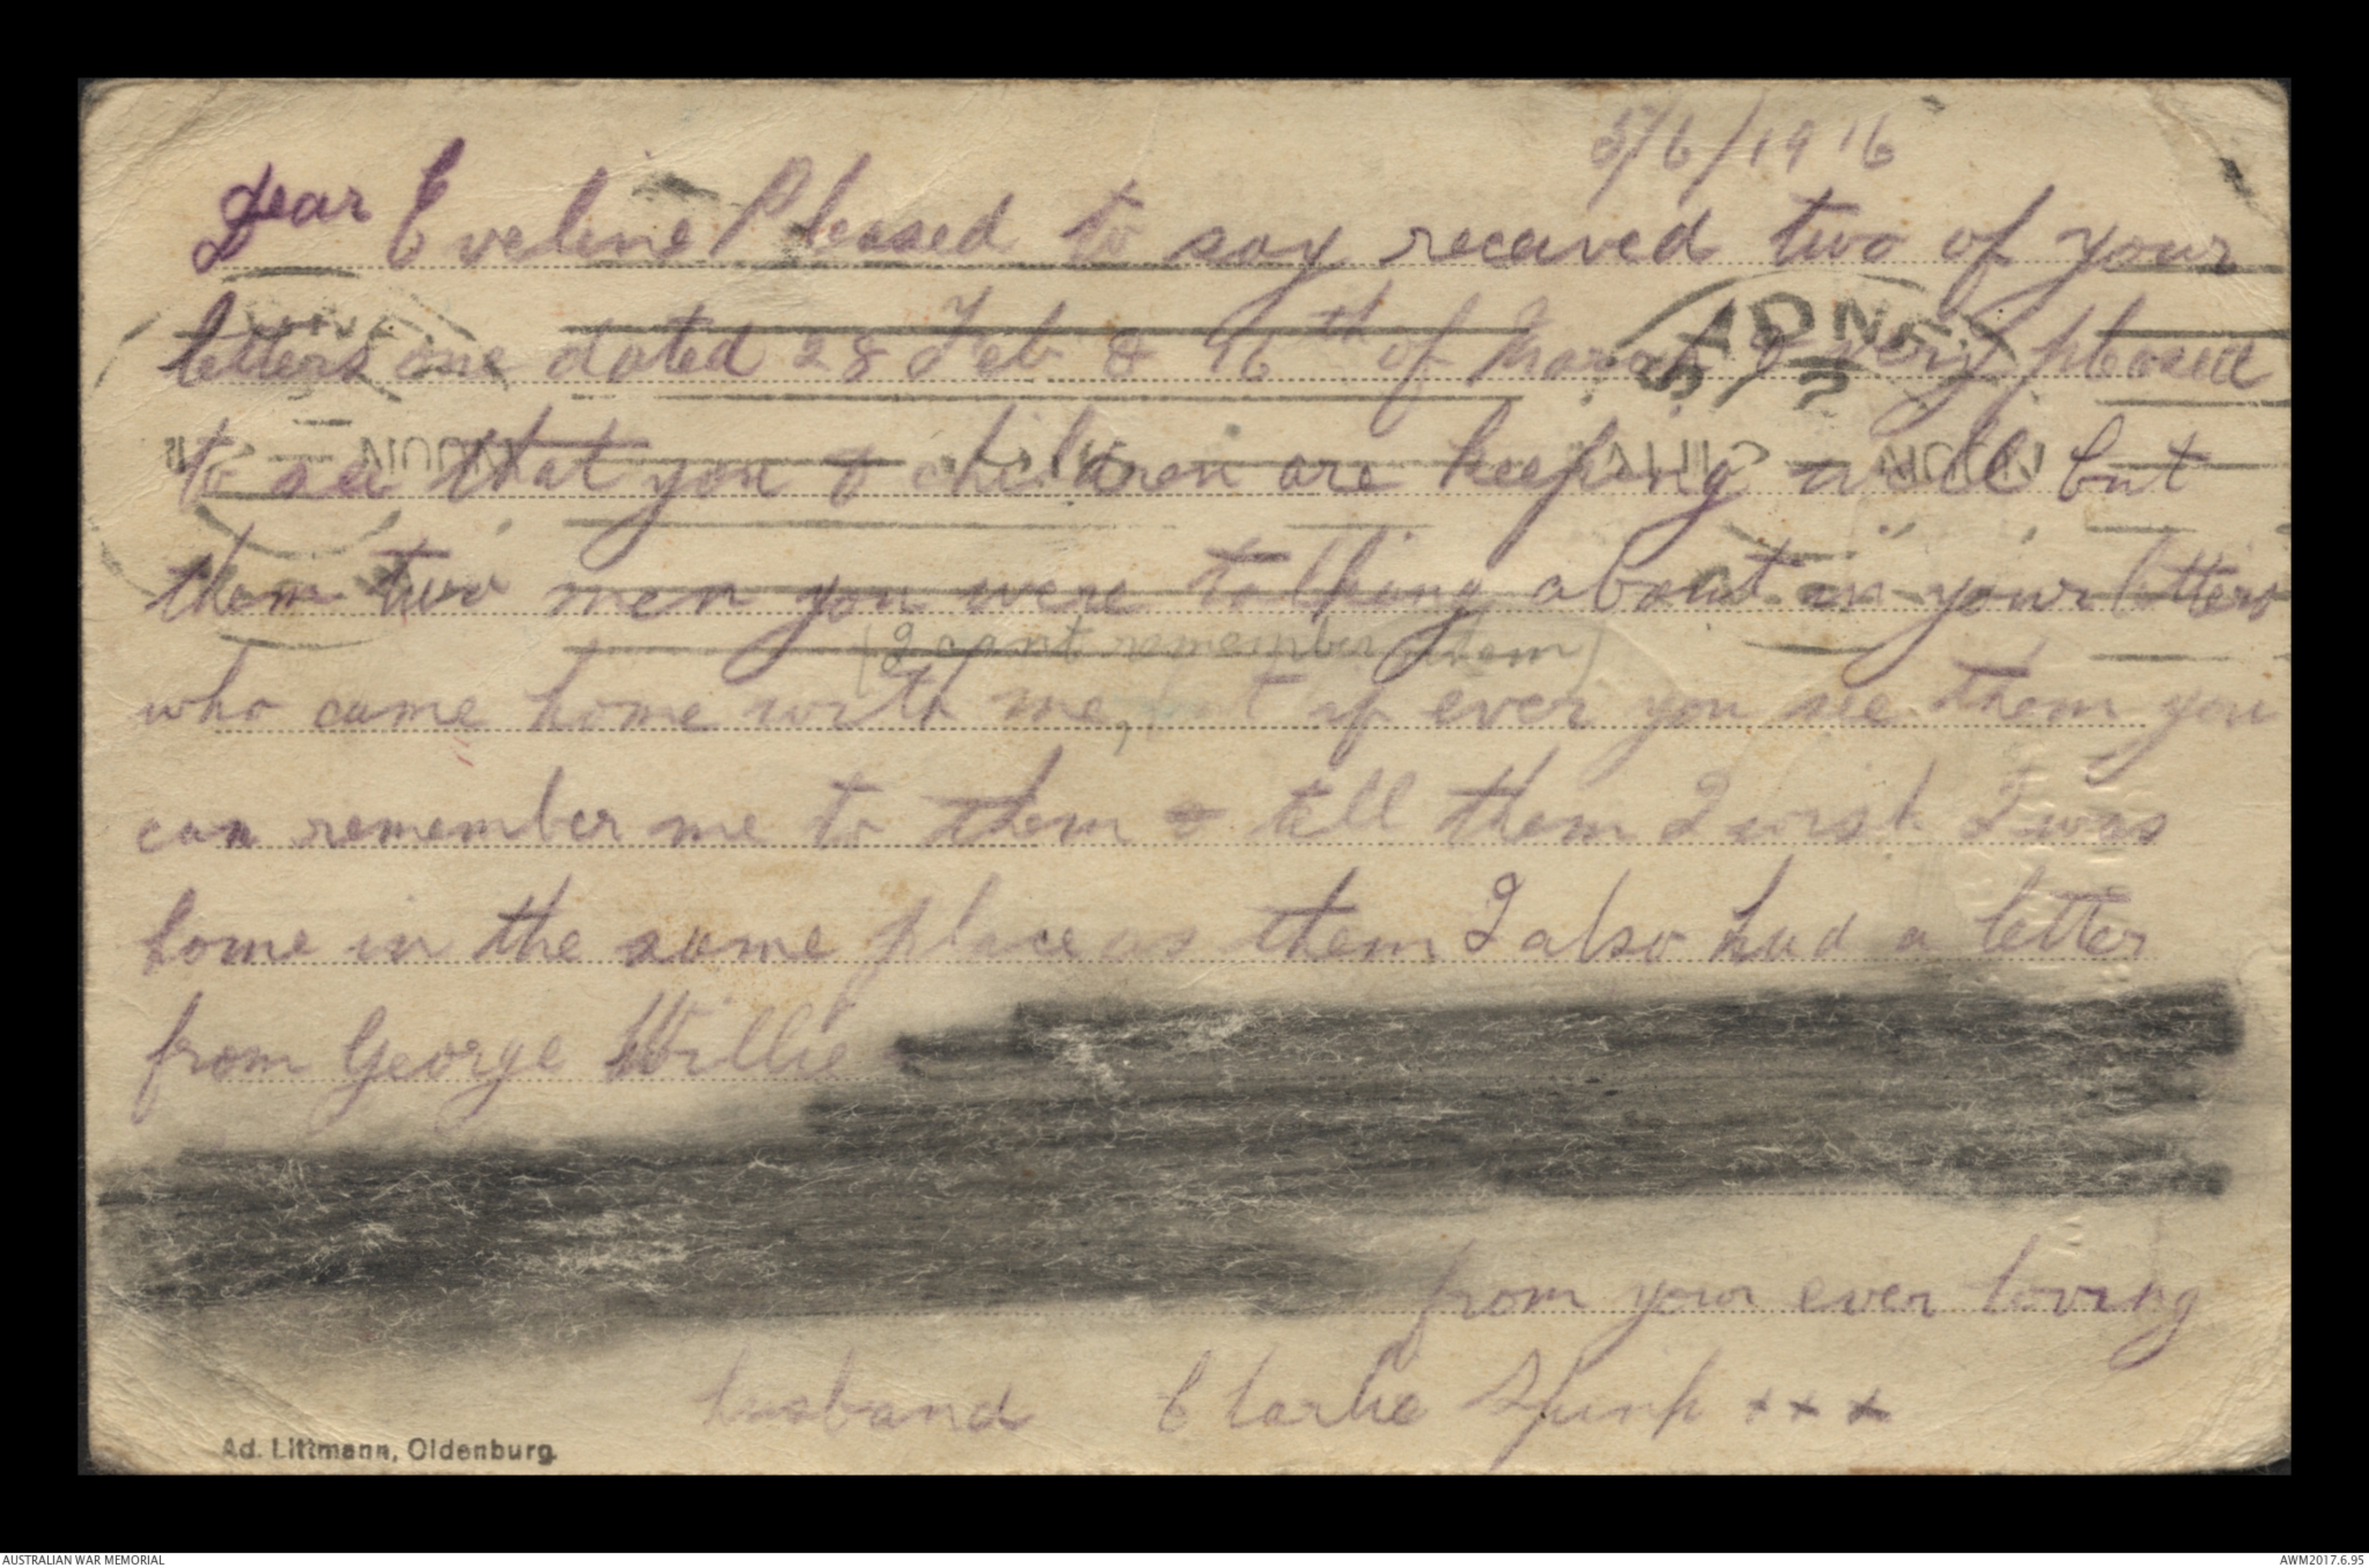 5/6/1916
Dear Eveline Pleased to say receaved two of your
letters one dated 28 Feb & 16th of March I very pleased
to see that you & children are keeping well but
them two men you were talking about in your letters
(I cant remember them)
who came home with me, but if ever you see them you
can remember me to them & tell them I wish I was
home in the same place as them I also had a letter
from George Willie
from your ever loving
husband Charlie Spink xxx
Ad. Littmann, Oldenburg.
SYDNEY
NOON
AUSTRALIAN WAR MEMORIAL
AWM2017.6.95